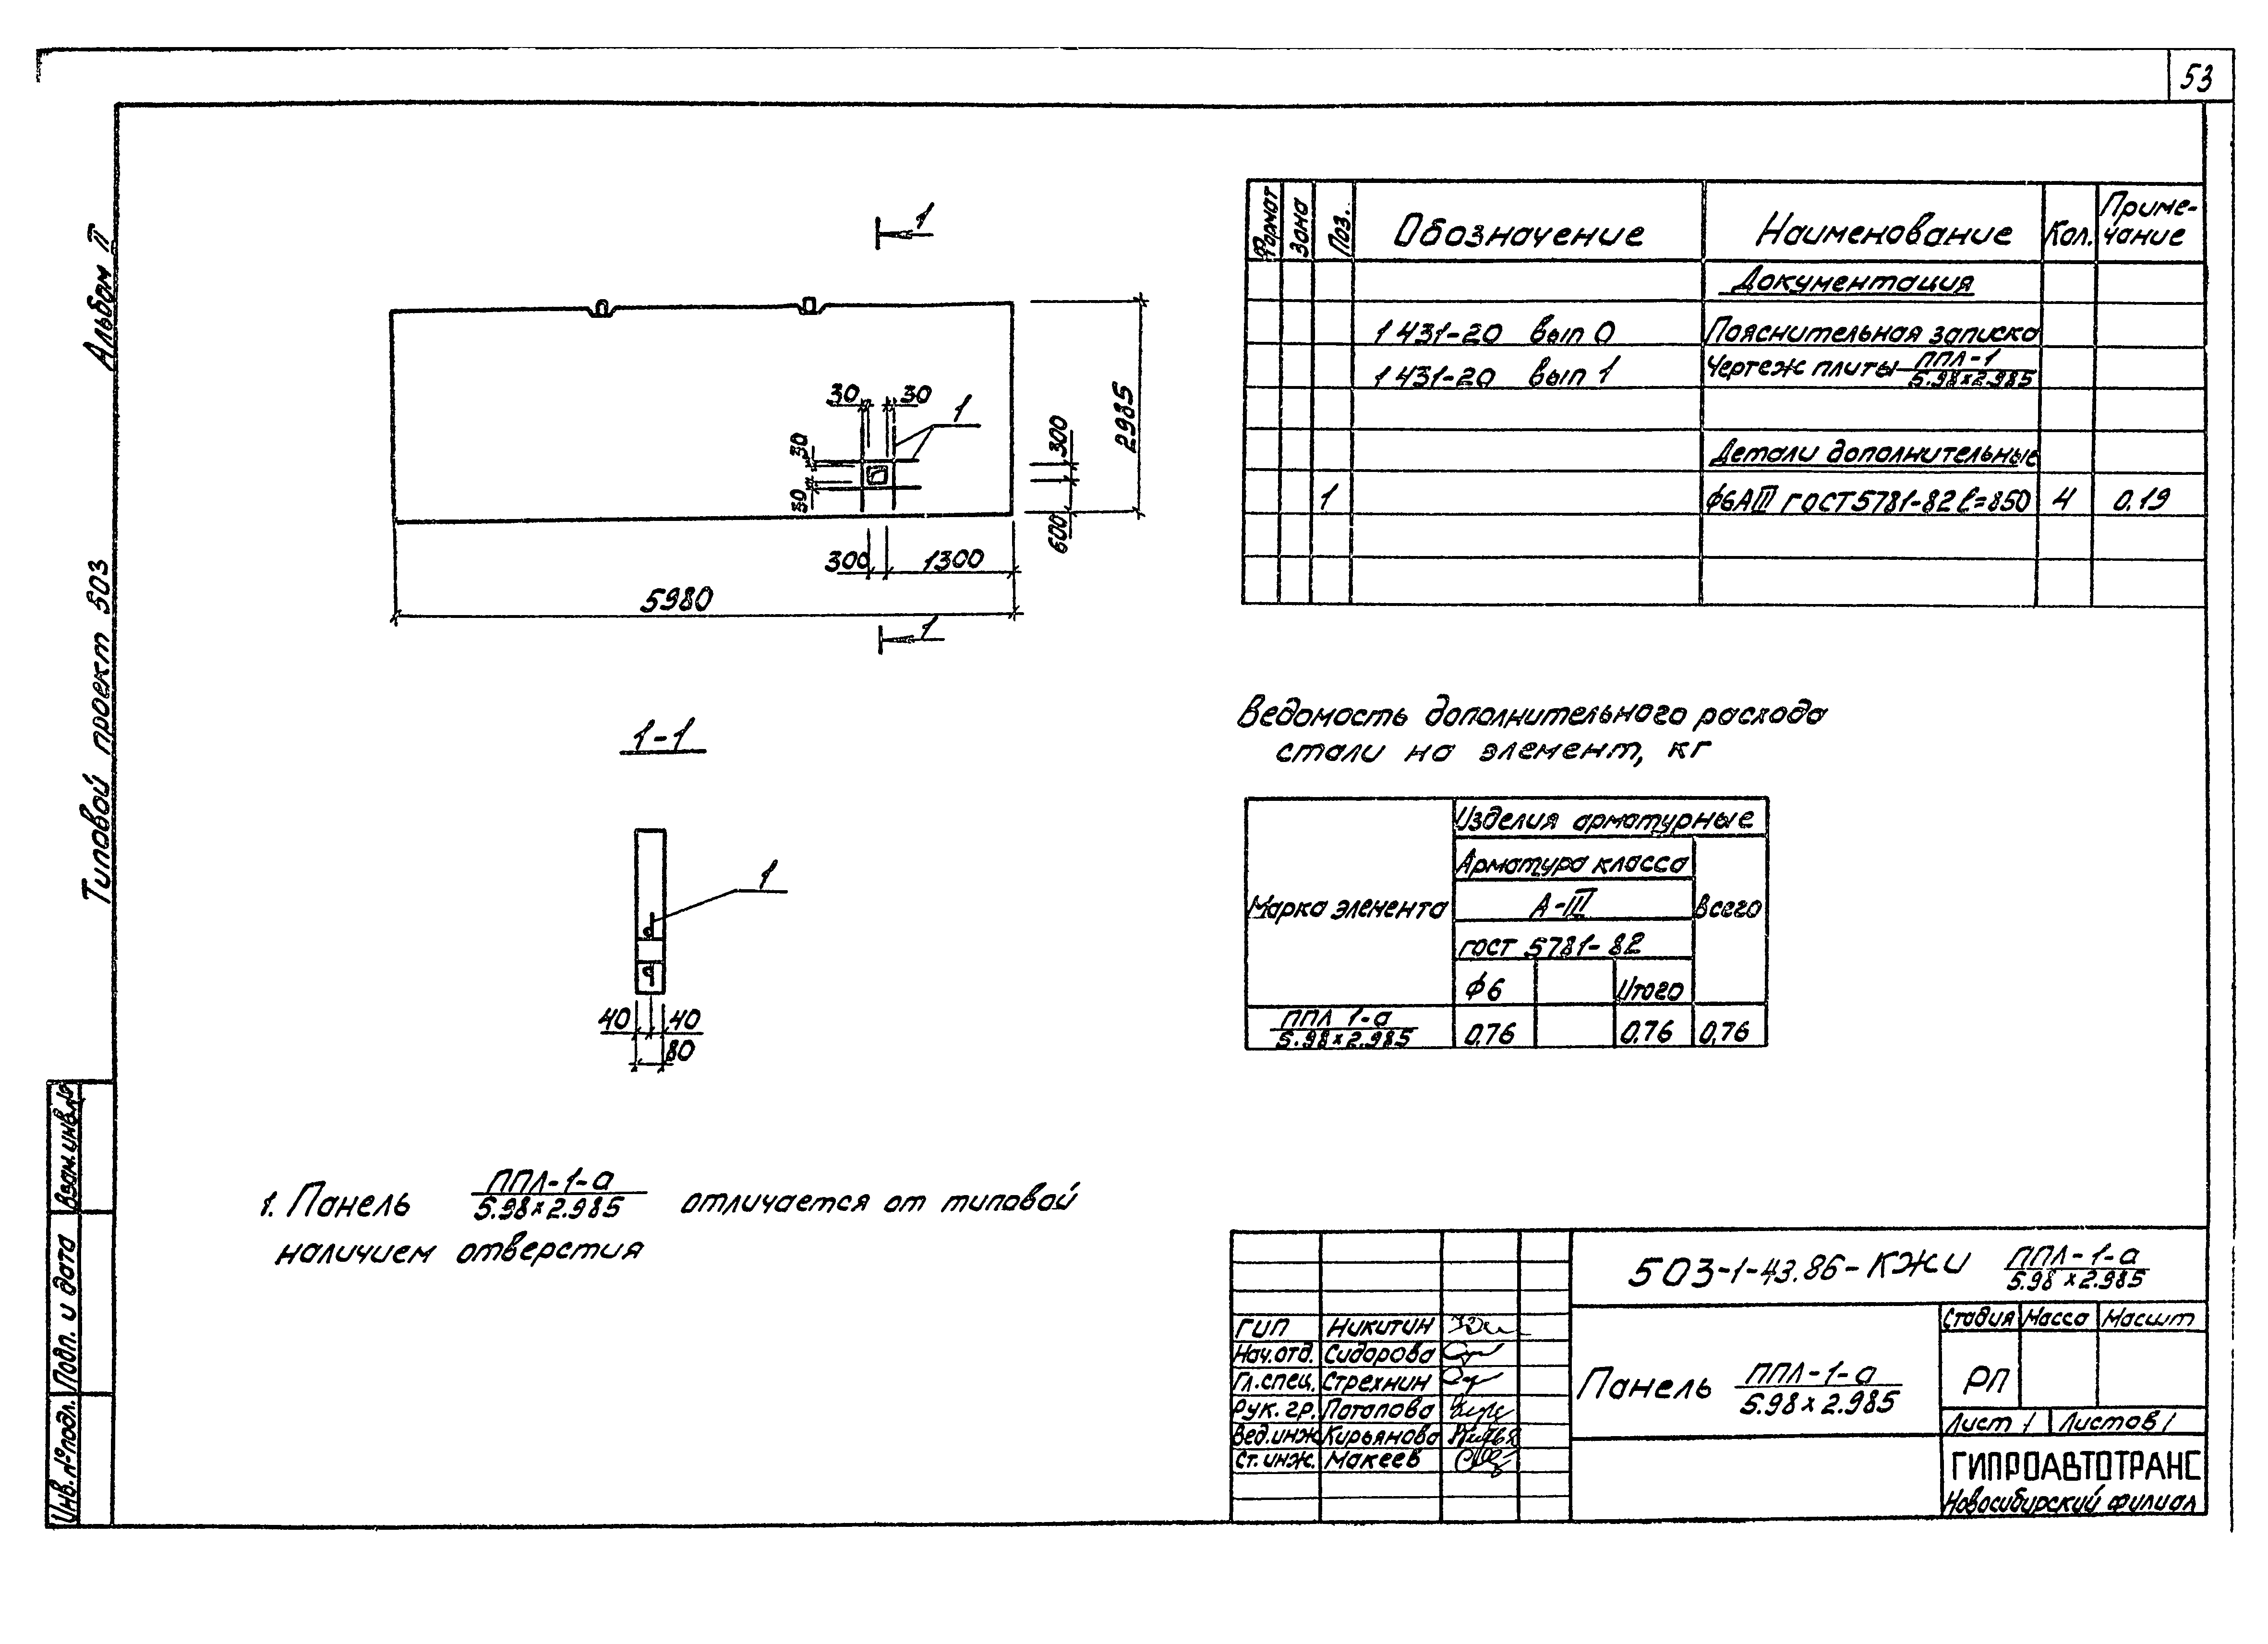 53
Альбом II
Типовой проект 503
1
30
30
1
30
30
300
600
2985
300
1300
5980
1
1-1
1
40
40
80
1. Панель ППЛ-1-а / 5.98×2.985 отличается от типовой
наличием отверстия
Формат
Зона
Поз.
Обозначение
Наименование
Кол.
Приме-
чание
Документация
1 431-20 вып 0 Пояснительная записка
1 431-20 вып 1 Чертеж плиты ППЛ-1 / 5.98×2.985
Детали дополнительные
1 ф6АIII ГОСТ5781-82 ℓ=850 4 0.19
Ведомость дополнительного расхода
стали на элемент, кг
Марка элемента
Изделия арматурные
Арматура класса
А-III
Всего
ГОСТ 5781-82
ф6
Итого
ППЛ 1-а / 5.98×2.985 0,76 0,76 0,76
503-1-43.86-КЖИ ППЛ-1-а / 5.98×2.985
ГИП Никитин
Нач.отд. Сидорова
Гл.спец. Стрехнин
Рук. гр. Потапова
Вед.инж Кирьянова
Ст. инж. Макеев
Панель ППЛ-1-а / 5.98×2.985
Стадия Масса Масшт
РП
Лист 1 Листов 1
ГИПРОАВТОТРАНС
Новосибирский филиал
Взам.инв.№
Подп. и дата
Инв.№подл.